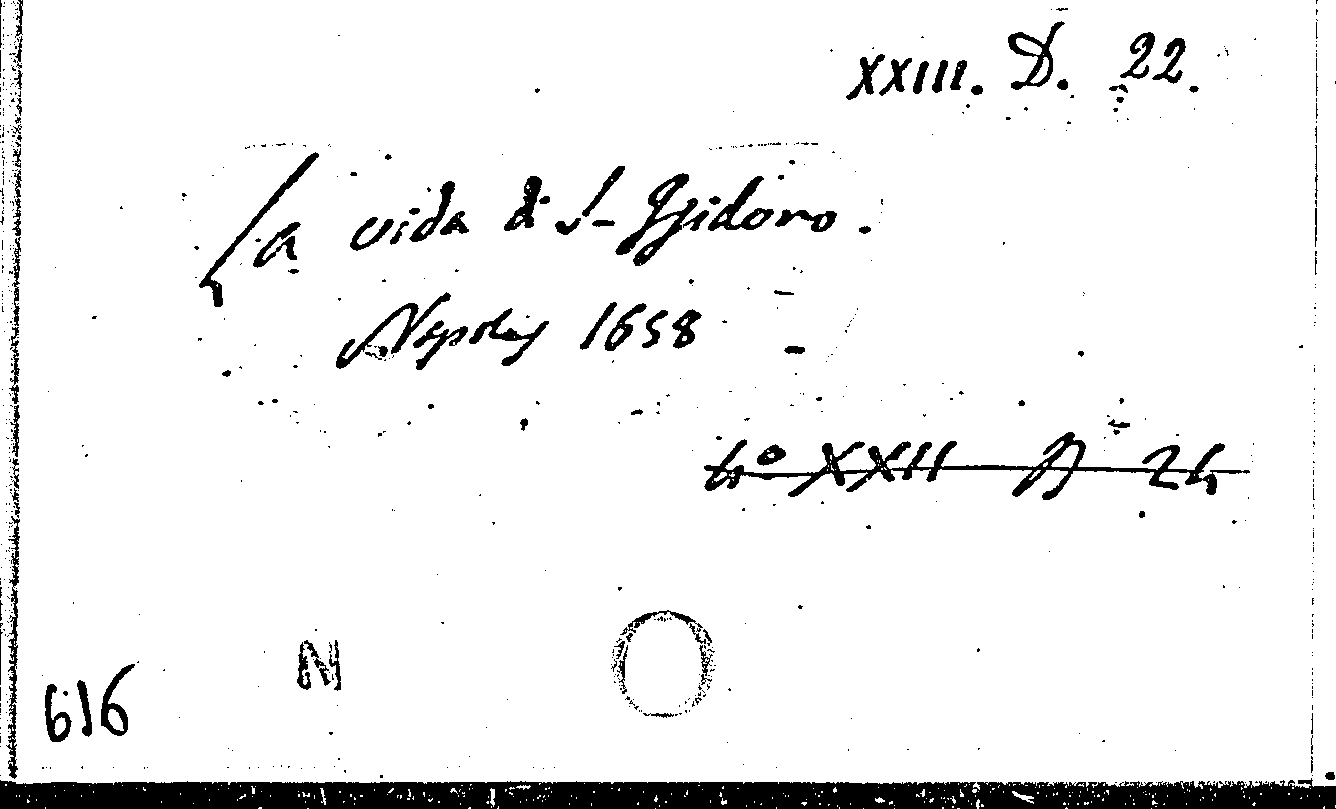 XXIII. D. 22.
La vida di S- Isidoro.
Napoly 1658
4º XXII D 24
N
616